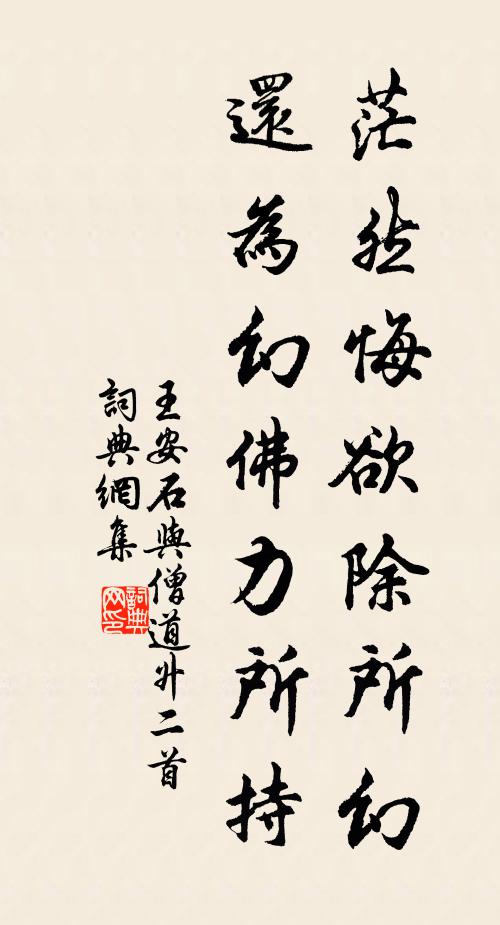 茫然悔欲除所幻
還為幻佛力所持
王安石與僧道升二首
詞典網集
詞典網印